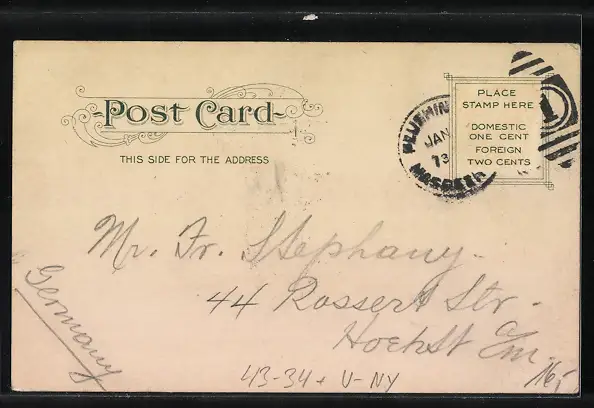 Post Card
THIS SIDE FOR THE ADDRESS
PLACE
STAMP HERE
DOMESTIC
ONE CENT
FOREIGN
TWO CENTS
JAN
13
MASPETH
1
Mr. Fr. Stephany.
44 Rossert Str.
Hoechst a/m.
Germany
43-34+ V-NY
16,-